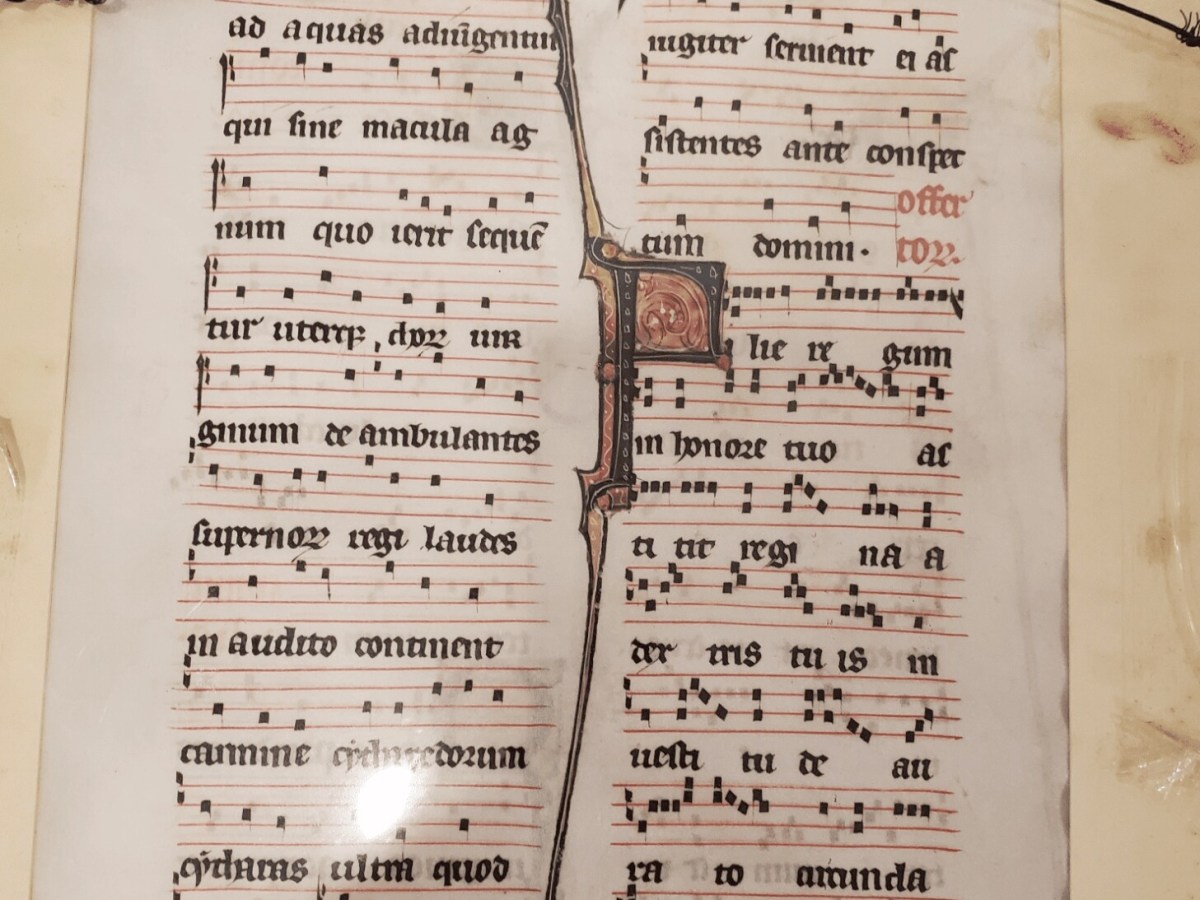 ad aquas adiūgentur
qui sine macula ag
num quo ierit sequē
tur uterqꝫ choꝝ uir
ginum de ambulantes
supernoꝝ regi laudes
in audito continent
carmine cÿtharedorum
cÿtharas ultra quod
iugiter seruient ei as
sistentes ante conspec
tum domini. offer
toꝝ.
Filie regum
in honore tuo as
ti tit regina a
dextris tuis in
uesti tu de au
ra to circunda